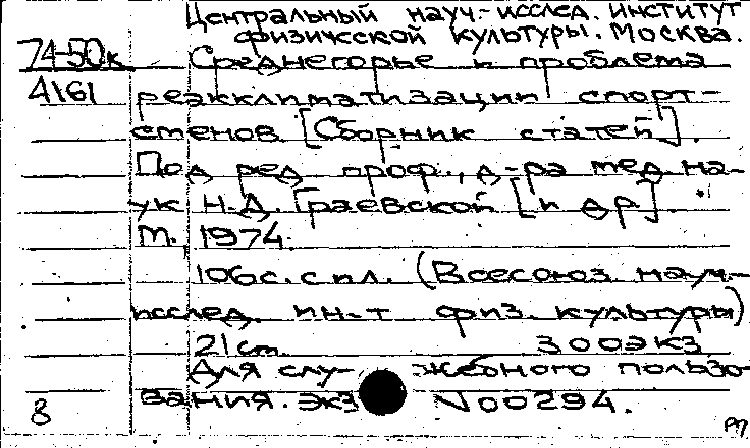 Центральный науч.-исслед. институт
физической культуры. Москва.
74-50к Среднегорье и проблема
4161 реакклиматизации спорт-
сменов [Сборник статей].
Под ред. проф., д-ра мед. на-
ук Н.Д. Граевской [и др].
М., 1974.
106с. с ил. (Всесоюз. науч.-
исслед. ин-т физ. культуры)
21см. 300экз
Для слу- жебного пользо-
8 вания. экз N00294.